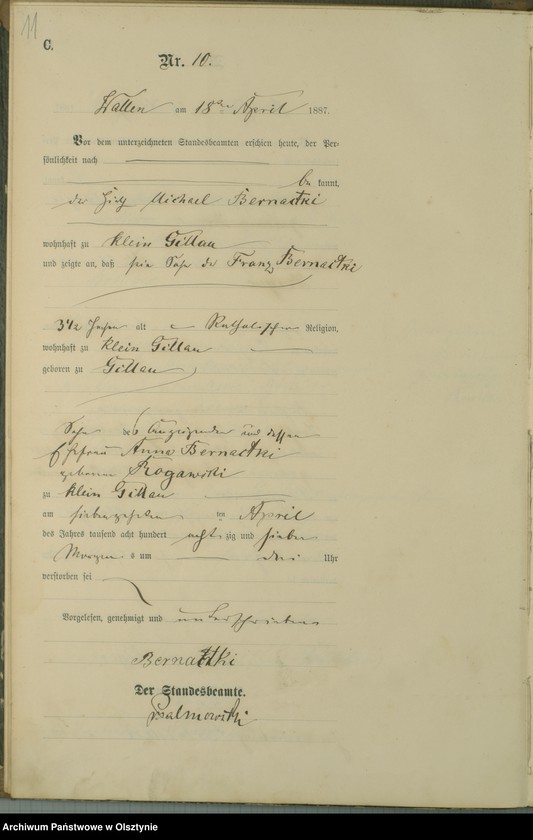 11
C.
Nr. 10.
Wallen am 18ten April 1887.
Vor dem unterzeichneten Standesbeamten erschien heute, der Per-
sönlichkeit nach
be kannt,
der Michael Bernatzki
wohnhaft zu Klein Gillau
und zeigte an, daß sein Sohn der Franz Bernatzki
3 1/2 Jahre alt Katholischer Religion,
wohnhaft zu Klein Gillau
geboren zu Gillau
Sohn des Anzeigenden und dessen
Ehefrau Anna Bernatzki
geborene Rogawski
zu Klein Gillau
am siebenzehnten ten April
des Jahres tausend acht hundert acht zig und sieben
Morgens um drei Uhr
verstorben sei
Vorgelesen, genehmigt und unterschrieben
Bernatzki
Der Standesbeamte.
Archiwum Państwowe w Olsztynie